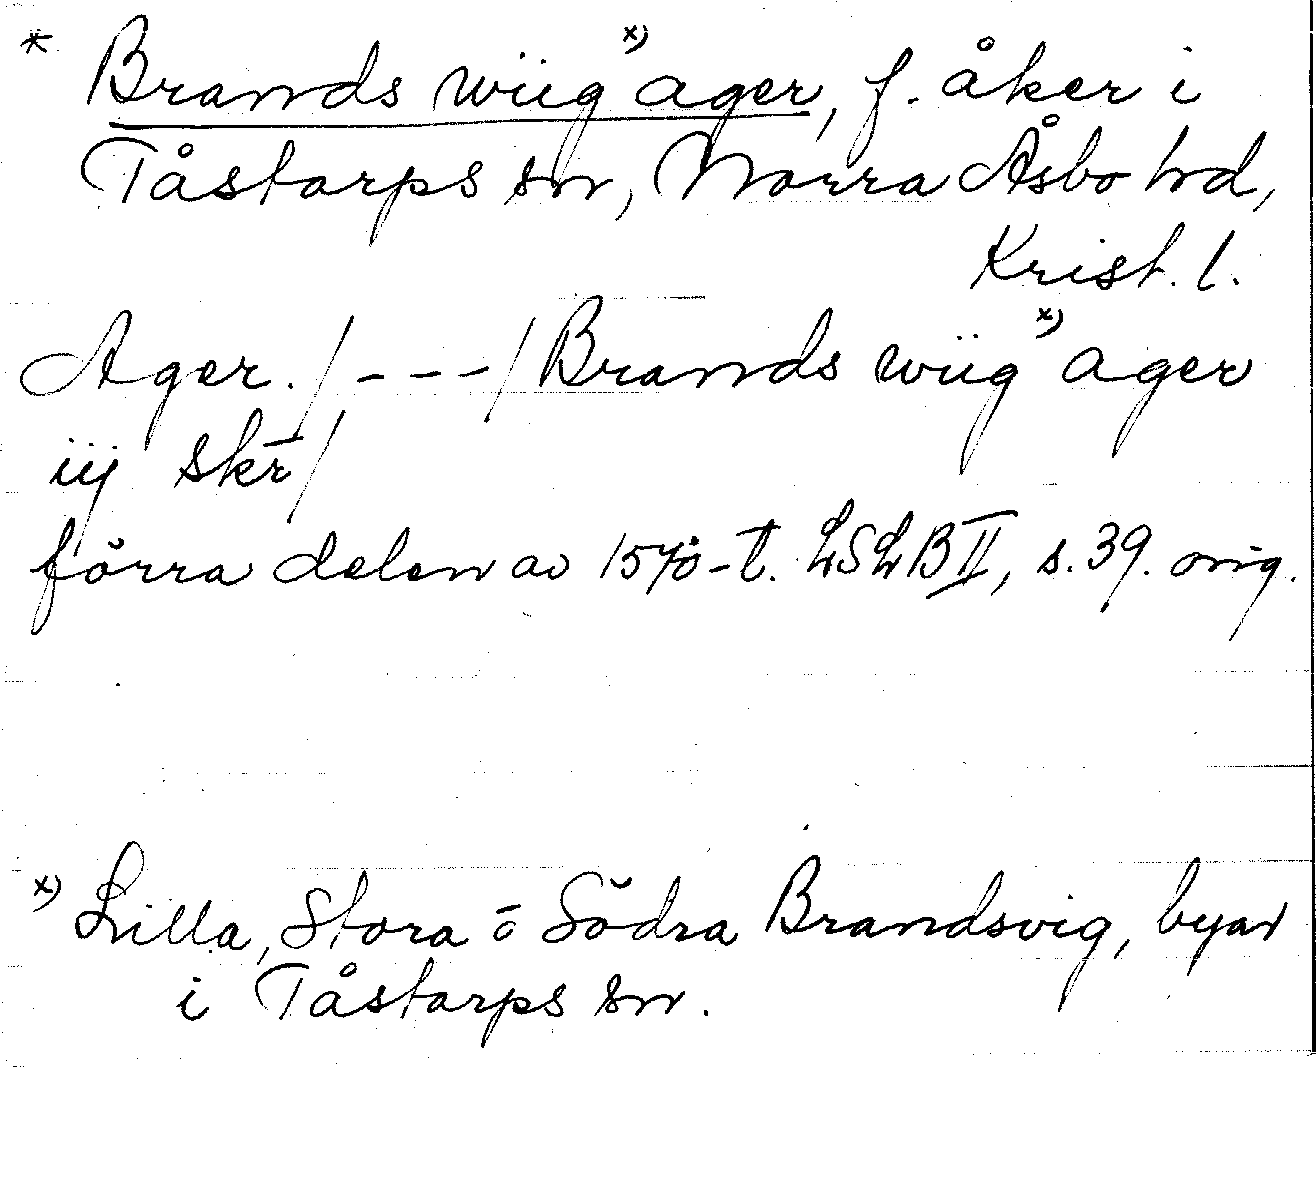 * Brands wiig x) ager, f. åker i
Tåstarps sn, Norra Åsbo hd,
Krist. l.
Ager. / - - - / Brands wiig x) ager
iij skr̄ /
förra delen av 1570-t. LSLB II, s. 39. orig.
x) Lilla, Stora o Södra Brandsvig, byar
i Tåstarps sn.